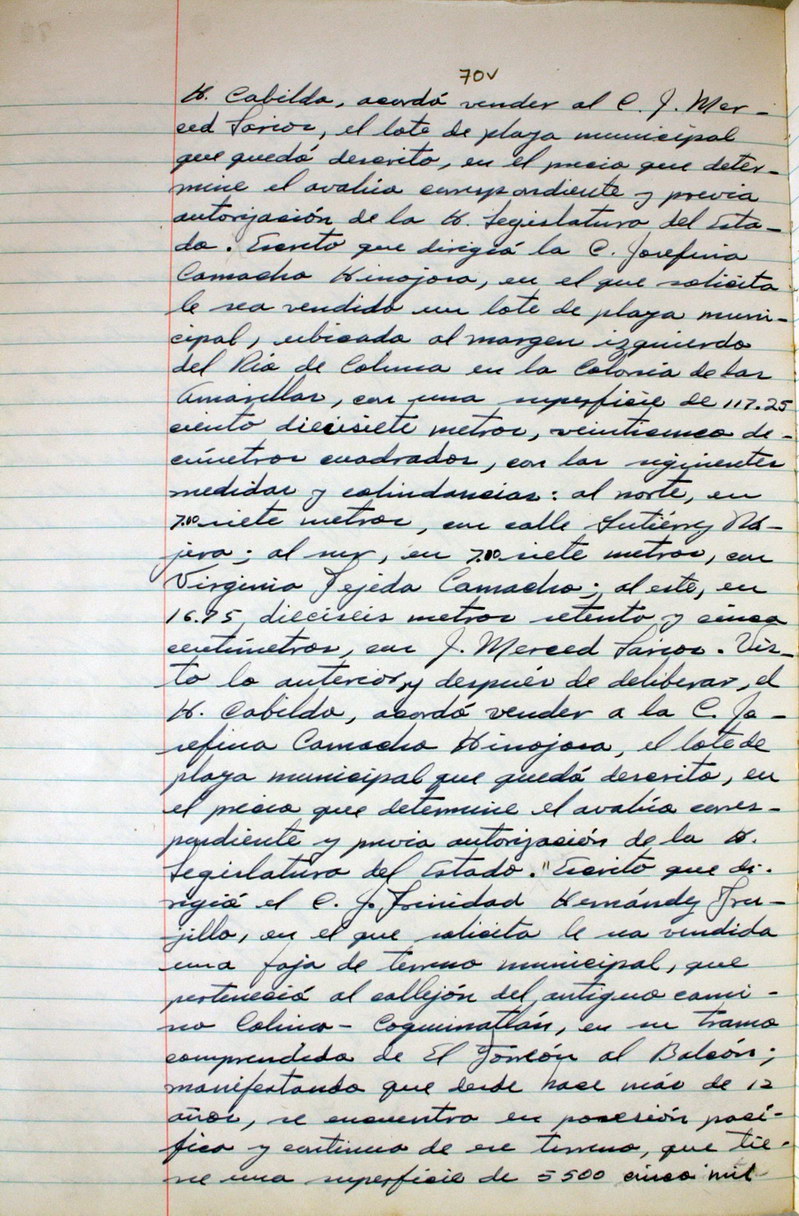 70v
H. Cabildo, acordó vender al C. J. Mer-
ced Larios, el lote de playa municipal
que quedó descrito, en el precio que deter-
mine el avalúo correspondiente y previa
autorización de la H. Legislatura del Esta-
do. Escrito que dirigió la C. Josefina
Camacho Hinojosa, en el que solicita
le sea vendido un lote de playa muni-
cipal, ubicado al margen izquierdo
del Río de Colima en la Colonia de las
Amarillas, con una superficie de 117.25
ciento diecisiete metros, veinticinco de-
címetros cuadrados, con las siguientes
medidas y colindancias: al norte, en
7.00 siete metros, con calle Gutiérrez Ná-
jera; al sur, en 7.00 siete metros, con
Virginia Tejeda Camacho; al este, en
16.75 dieciseis metros setenta y cinco
centímetros, con J. Merced Larios. Vis-
to lo anterior, y después de deliberar, el
H. Cabildo, acordó vender a la C. Jo-
sefina Camacho Hinojosa, el lote de
playa municipal que quedó descrito, en
el precio que determine el avalúo corres-
pondiente y previa autorización de la H.
Legislatura del Estado." Escrito que di-
rigió el C. J. Trinidad Hernández Tru-
jillo, en el que solicita le sea vendida
una faja de terreno municipal, que
perteneció al callejón del antiguo cami-
no Colima - Coquimatlán, en su tramo
comprendido de El Torreón al Balcón;
manifestando que desde hace más de 12
años, se encuentra en posesión pací-
fica y continua de ese terreno, que tie-
ne una superficie de 5500 cinco mil